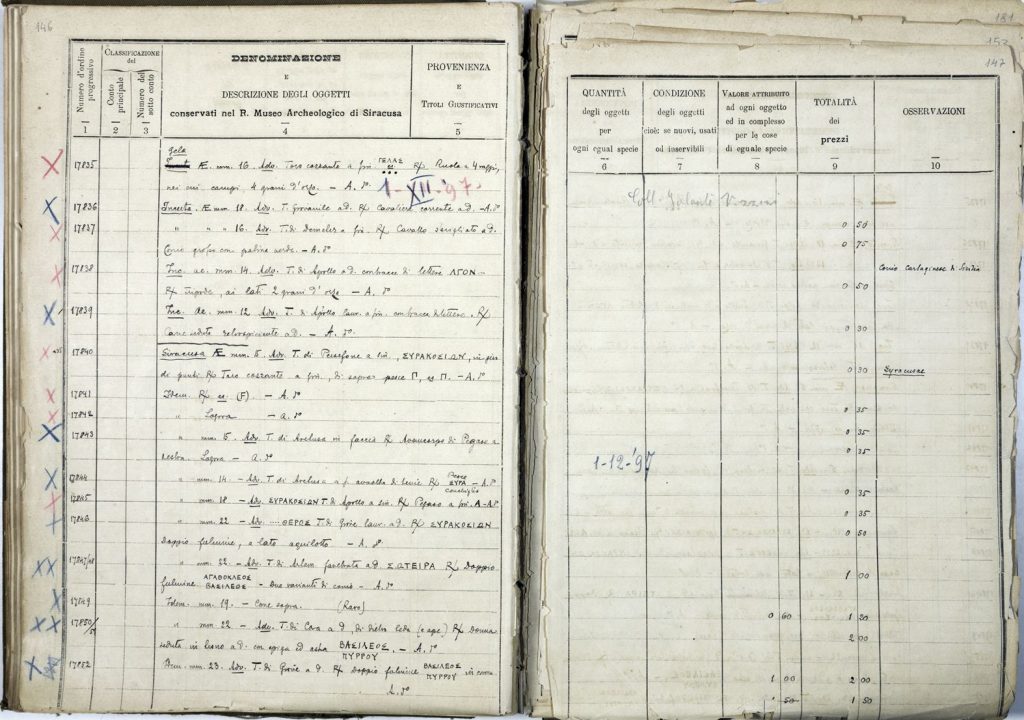 146
Numero d'ordine progressivo
CLASSIFICAZIONE del
Conto principale
Numero del sotto conto
DENOMINAZIONE
E
DESCRIZIONE DEGLI OGGETTI
conservati nel R. Museo Archeologico di Siracusa
PROVENIENZA
E
TITOLI GIUSTIFICATIVI
1 2 3 4 5
Gela
17835 Æ mm. 16. Adv. Toro cozzante a sin. ΓΕΛΑΣ Rx Ruota a 4 raggi,
nei cui campi, 4 grani d'orzo - A. 1°
1-XII-97.
17836 Incerta Æ mm 18. Adv. T. Giovanile a d. Rx Cavaliere corrente a d. - A. 1°
17837 " " " 16. Adv. T. di Demeter a sin. Rx Cavallo a d.
Conio con patina verde. - A. 1°
17838 Inc. ae. mm. 14. Adv. T. di Apollo a d. con tracce di lettere ΛΓΟΝ -
Rx tripode, ai lati 2 grani d'orzo - A. 1°
17839 Inc. ae. mm. 12. Adv. T. di Apollo laur. a sin. con tracce di lettere. Rx
Cane seduto retrospiciente a d. - A. 1°
17840 Siracusa Æ mm. 15. Adv. T. di Persefone a sin., ΣΥΡΑΚΟΣΙΩΝ, in giro
di punti Rx Toro cozzante a sin., di sopra Π, es Π. - A. 1°
17841 Idem. Rx es (F) - A. 1°
17842 " Sopra - A. 1°
17843 " mm. 15 Adv. T. di Aretusa in faccia Rx Avancorpo di Pegaso a
destra. Sopra - A. 1°
17844 " mm. 14 - Adv. T. di Aretusa a s. Rx ΣΥΡΑ conchiglia - A. 1°
17845 " mm. 18 - Adv. ΣΥΡΑΚΟΣΙΩΝ T. di Apollo a sin. Rx Pegaso a sin. A - A. 1°
17846 " mm. 22 - Adv. ····ΘΕΡΟΣ T. di Giove laur. a d. Rx ΣΥΡΑΚΟΣΙΩΝ
Doppio fulmine, a lato aquilotto - A. 1°
17847/48 " mm. 22 - Adv. T. di Artem. faretrata a d. ΣΩΤΕΙΡΑ Rx Doppio
fulmine ΑΓΑΘΟΚΛΕΟΣ ΒΑΣΙΛΕΟΣ - Due varianti di conio - A. 1°
17849 Idem. mm. 19. - Come sopra. (Raro)
17850/51 " mm. 22 - Adv. T. di Cora a d., di dietro (e ape) Rx Donna
seduta in trono a d. con spiga ed asta ΒΑΣΙΛΕΟΣ ΠΥΡΡΟΥ - A. 1°
17852 mm. 23. Adv. T. di Giove a d. Rx Doppio fulmine ΒΑΣΙΛΕΟΣ ΠΥΡΡΟΥ in corona
A. 1°
181
153
147
QUANTITÀ
degli oggetti
per
ogni egual specie
CONDIZIONE
degli oggetti
cioè: se nuovi, usati
od inservibili
VALORE ATTRIBUITO
ad ogni oggetto
ed in complesso
per le cose
di eguale specie
TOTALITÀ
dei
prezzi
OSSERVAZIONI
6 7 8 9 10
Coll. Gelanti Vizzini
0 50
0 75
Conio Cartaginese di Sicilia
0 50
0 30
0 30 Syracusae
0 35
0 35
1-12-'97
0 35
0 35
0 50
1 00
0 60 1 20
2 00
1 00 2 00
1 50 1 50